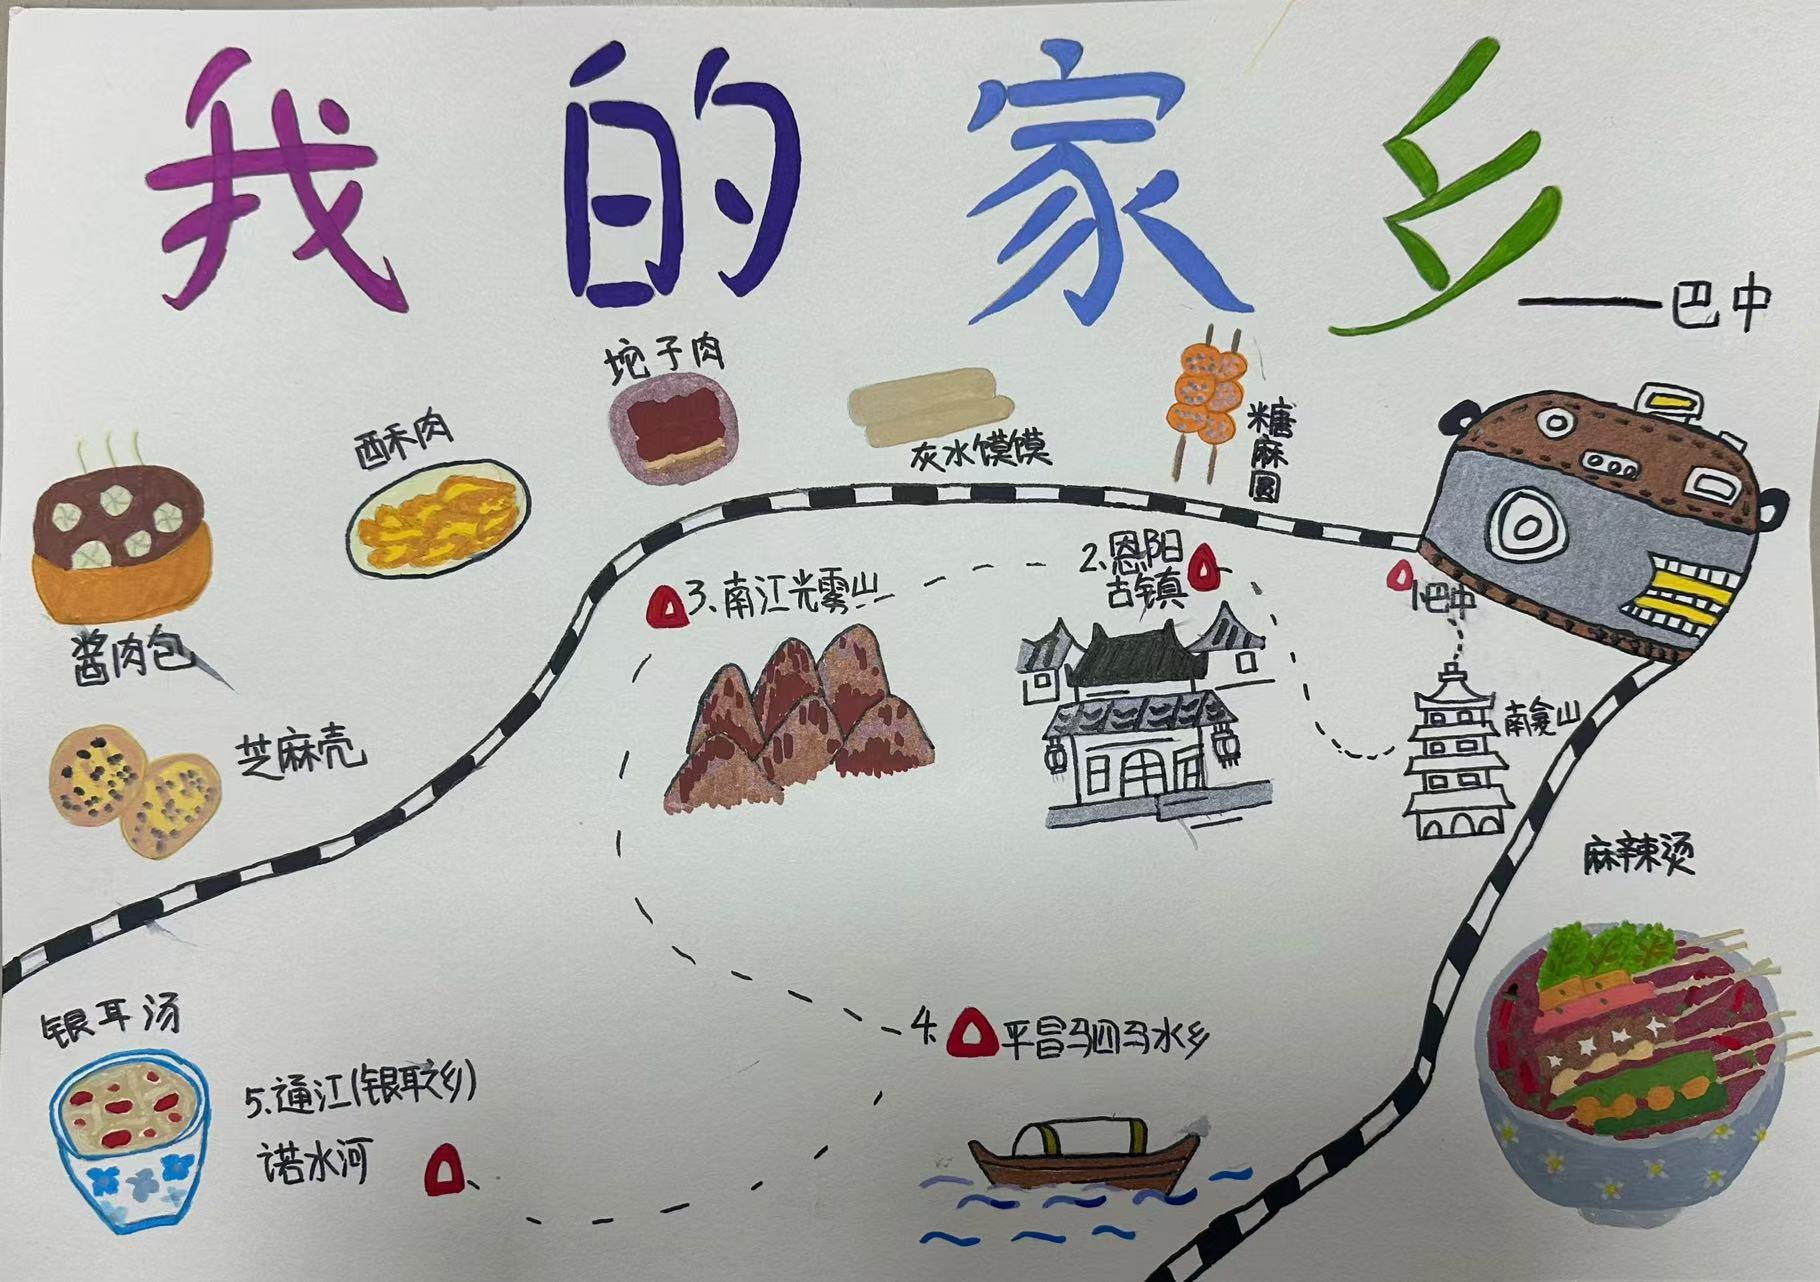 我的家乡
——巴中
坨子肉
酥肉
灰水馍馍
糖麻圆
酱肉包
芝麻壳
2.恩阳
古镇
3、南江光雾山
1巴中
南龛山
麻辣烫
银耳汤
4.平昌驷马水乡
5.通江(银耳之乡)
诺水河